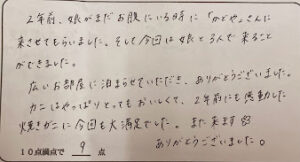 ２年前、娘がまだお腹にいる時に「かどや」さんに
来させてもらいました。そして今回は娘と3人で来ること
ができました。
広いお部屋に泊まらせていただき、ありがとうございました。
カニはやっぱりとってもおいしくて、２年前にも感動した
焼きガニに今回も大満足でした。また来ます
ありがとうございました。
10点満点で 9 点